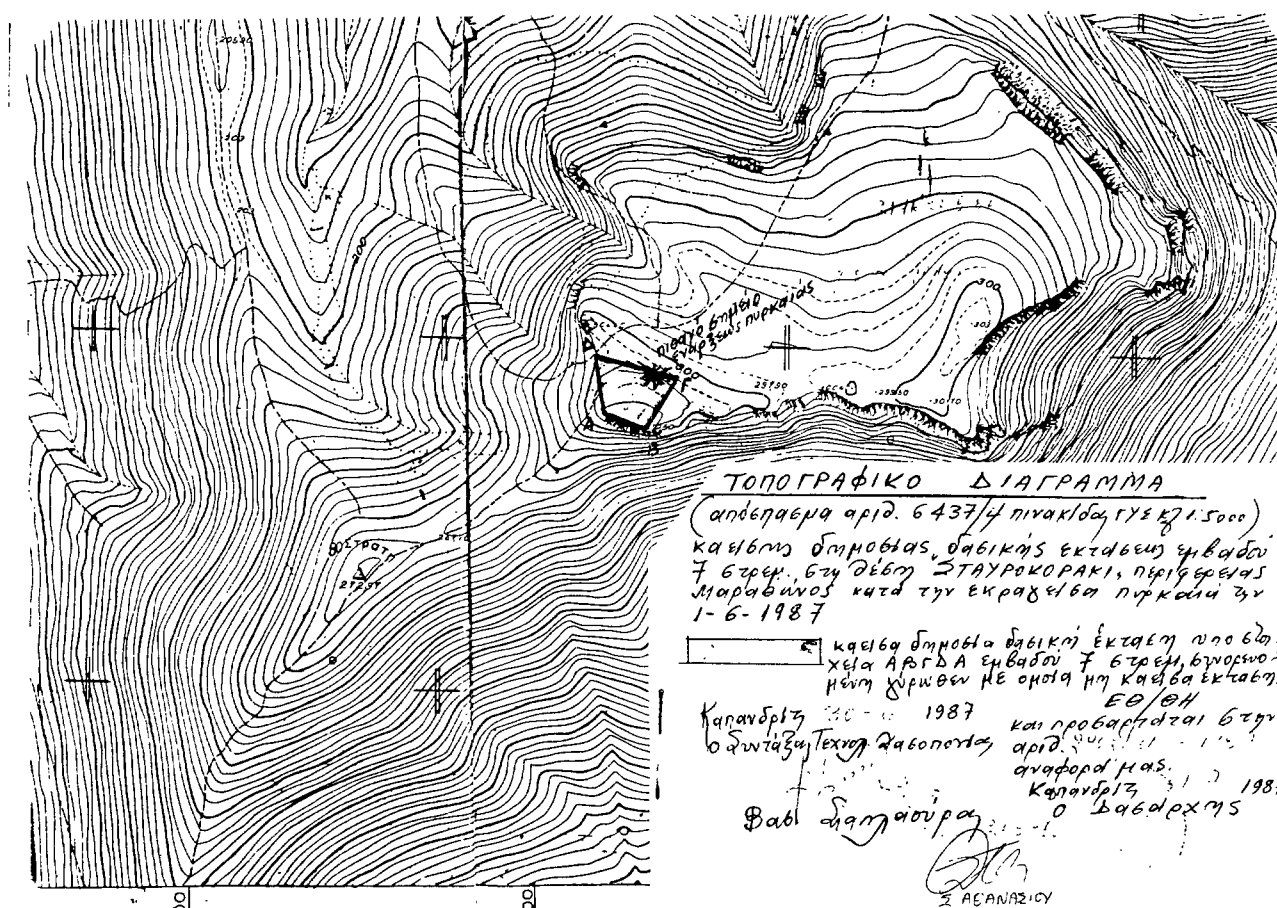 20520
303
200
300
303
πιθανό σημείο
ενάρξεως πυρκαϊάς
300
Δ
Γ
Α
Β
ΣΤΡΑΤΗ
ΤΟΠΟΓΡΑΦΙΚΟ ΔΙΑΓΡΑΜΜΑ
(απόσπασμα αριθ. 6437/4 πινακίδας ΓΥΣ κλ 1:5000)
καείσης δημοσίας δασικής εκτάσεως εμβαδού
7 στρεμ. στη θέση ΣΤΑΥΡΟΚΟΡΑΚΙ, περιφερείας
Μαραθώνος κατά την εκραγείσα πυρκαϊά την
1-6-1987
καείσα δημοσία δασική έκταση υπο στοι-
χεία ΑΒΓΔΑ εμβαδού 7 στρεμ, συνορευο-
μένη γύρωθεν με ομοία μη καείσα έκταση.
ΕΘ/ΘΗ
Καπανδρίτι 1987
ο Συντάξας Τεχνολ Δασοπονίας
και προσαρτάται στην
αριθ.
αναφορά μας.
Καπανδρίτι 198
Ο Δασάρχης
Βασ
Σ ΑΘΑΝΑΣΙΟΥ